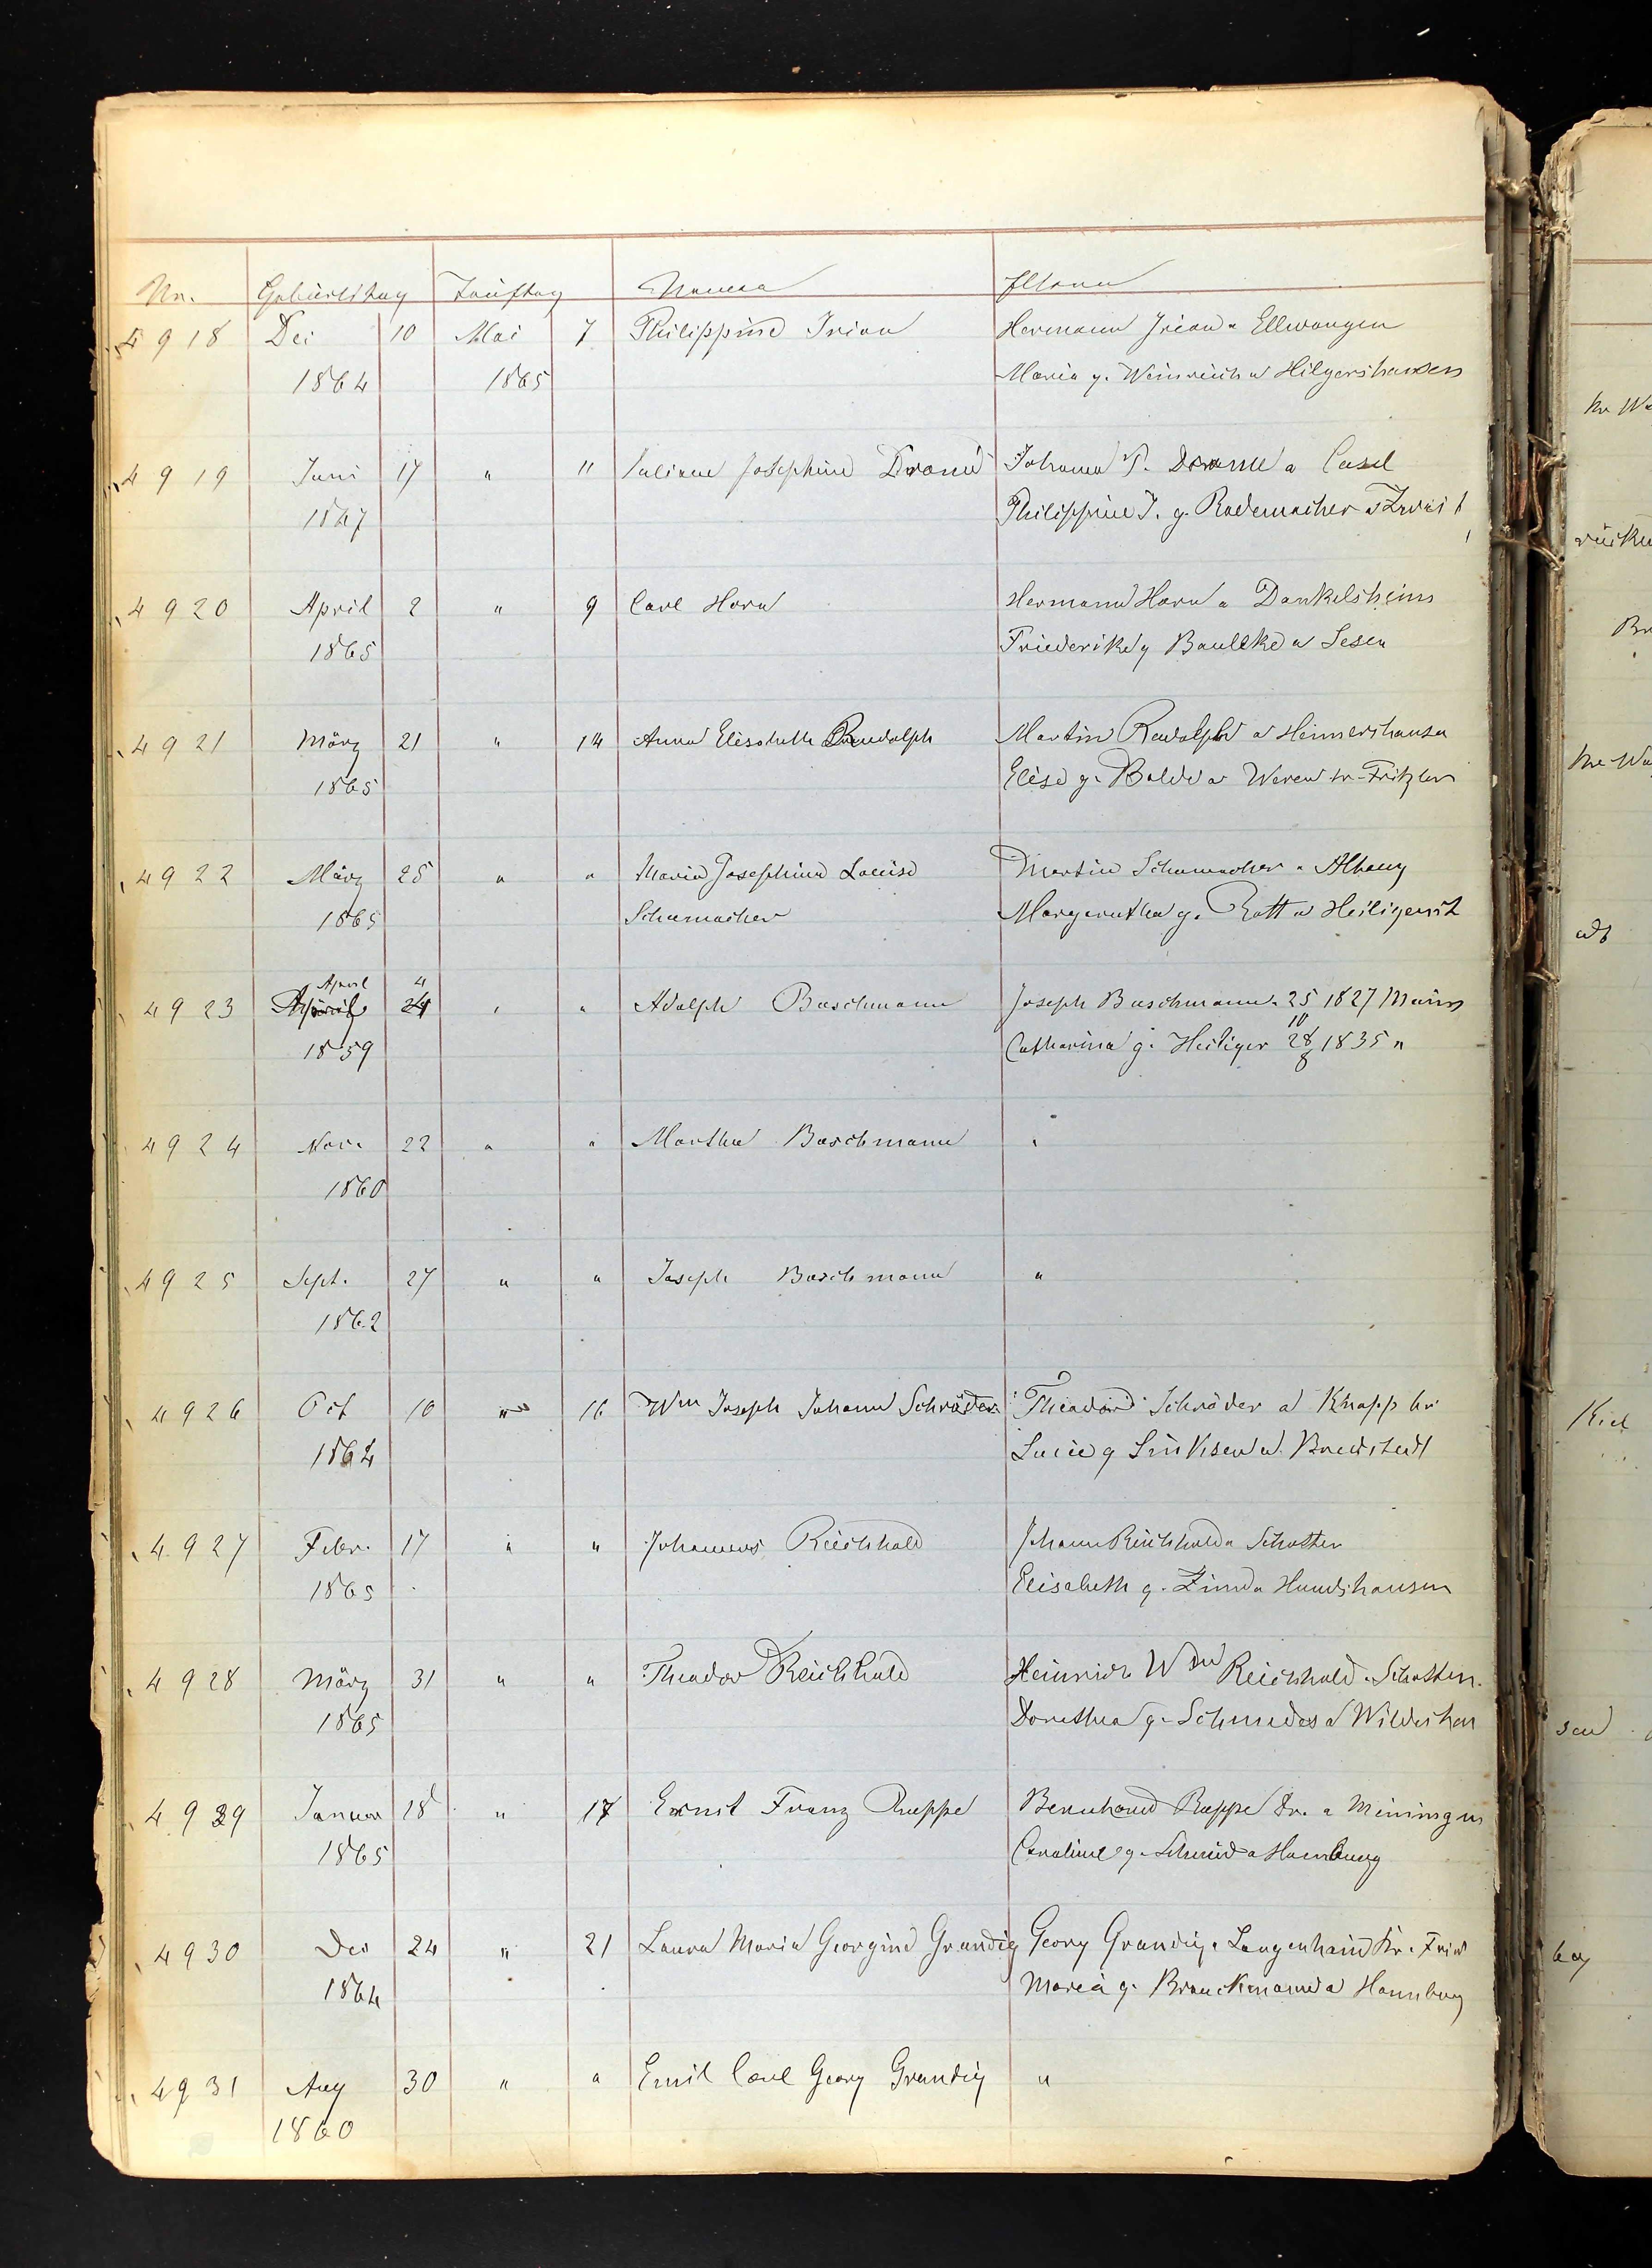 No. Geburtstag Tauftag Namen Eltern
4918 Dec 10 Mai 7 Philippine Irion Hermann Irion a Ellwangen
1864 1865 Maria g. Weinreich a Hilgershausen
4919 Juni 17 " 11 Juliane Josephine Drome Johann P. Drome a Casel
1847 Philippine J. g. Rademacher a
4920 April 2 " 9 Carl Horn Hermann Horn a Dankelsheim
1865 Friederike g Baulke a Sesen
4921 März 21 " 14 Anna Elisabeth Rudolph Martin Rudolph a Heimershausen
1865 Elise g. Bolde a Weren kr. Fritzlar
4922 März 25 " " Maria Josephine Louise Martin Schumacher a Albany
1865 Schumacher Margaretha g. Rott a Heiligenst
April 4
4923 24 " " Adolph Buschmann Joseph Buschmann. 25/10 1827 Mainz
1859 Catharina g. Heiliger 28/8 1835 "
4924 Nov. 22 " " Martha Buschmann "
1860
4925 Sept. 27 " " Joseph Buschmann "
1862
4926 Oct 10 " 16 Wm Joseph Johann Schröder Theodor Schröder a Knapp kr
1864 Lucie g Linksen a. Bredstedt
4927 Febr. 17 " " Johannes Reichhold Johann Reichhold a Schotten
1865 Elisabeth g. Zinn a Hundshausen
4928 März 31 " " Theodor Reichhold Heinrich Wm Reichhold a Schotten.
1865 Dorothea g. Schmedes a Wildeshau
4929 Januar 18 " 17 Ernst Franz Ruppe Bernhard Ruppe Dr. a Meiningen
1865 Caroline g. Schmid a Hamburg
4930 Dec 24 " 21 Laura Maria Georgine Grundig Georg Grundig a Langenhain Kr. Fried
1864 Maria g. Brauckmann a Homburg
4931 Aug 30 " " Emil Carl Georg Grundig "
1860